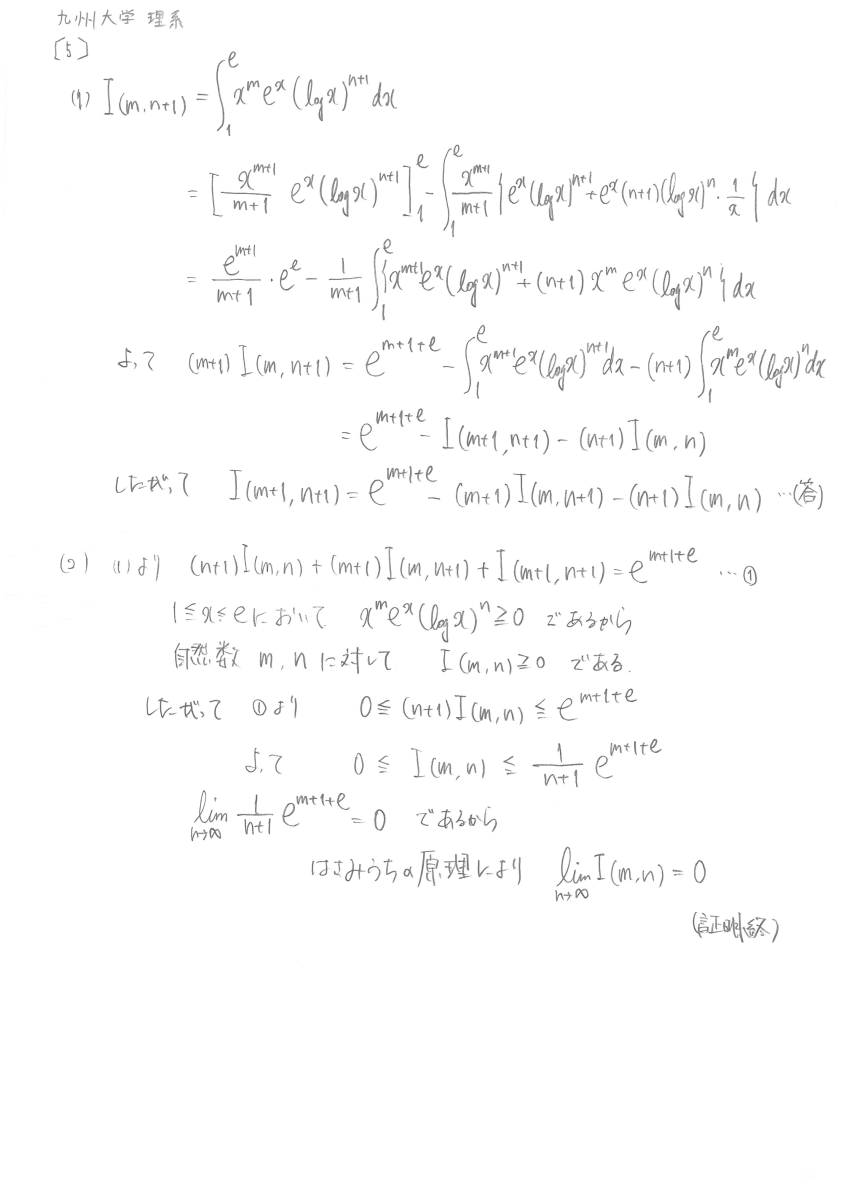 九州大学 理系
[5]
(1) I(m,n+1) = ∫₁^e x^m e^x (log x)^{n+1} dx
= [x^{m+1}/(m+1) e^x (log x)^{n+1}]₁^e − ∫₁^e x^{m+1}/(m+1) {e^x (log x)^{n+1} + e^x (n+1)(log x)^n · 1/x} dx
= e^{m+1}/(m+1) · e^e − 1/(m+1) ∫₁^e {x^{m+1} e^x (log x)^{n+1} + (n+1) x^m e^x (log x)^n} dx
よって (m+1) I(m,n+1) = e^{m+1+e} − ∫₁^e x^{m+1} e^x (log x)^{n+1} dx − (n+1) ∫₁^e x^m e^x (log x)^n dx
= e^{m+1+e} − I(m+1,n+1) − (n+1) I(m,n)
したがって I(m+1,n+1) = e^{m+1+e} − (m+1) I(m,n+1) − (n+1) I(m,n) …(答)
(2) (1)より (n+1) I(m,n) + (m+1) I(m,n+1) + I(m+1,n+1) = e^{m+1+e} …①
1≦x≦eにおいて x^m e^x (log x)^n ≧ 0 であるから
自然数 m, n に対して I(m,n) ≧ 0 である.
したがって ①より 0 ≦ (n+1) I(m,n) ≦ e^{m+1+e}
よって 0 ≦ I(m,n) ≦ 1/(n+1) e^{m+1+e}
lim_{n→∞} 1/(n+1) e^{m+1+e} = 0 であるから
はさみうちの原理により lim_{n→∞} I(m,n) = 0
(証明終)